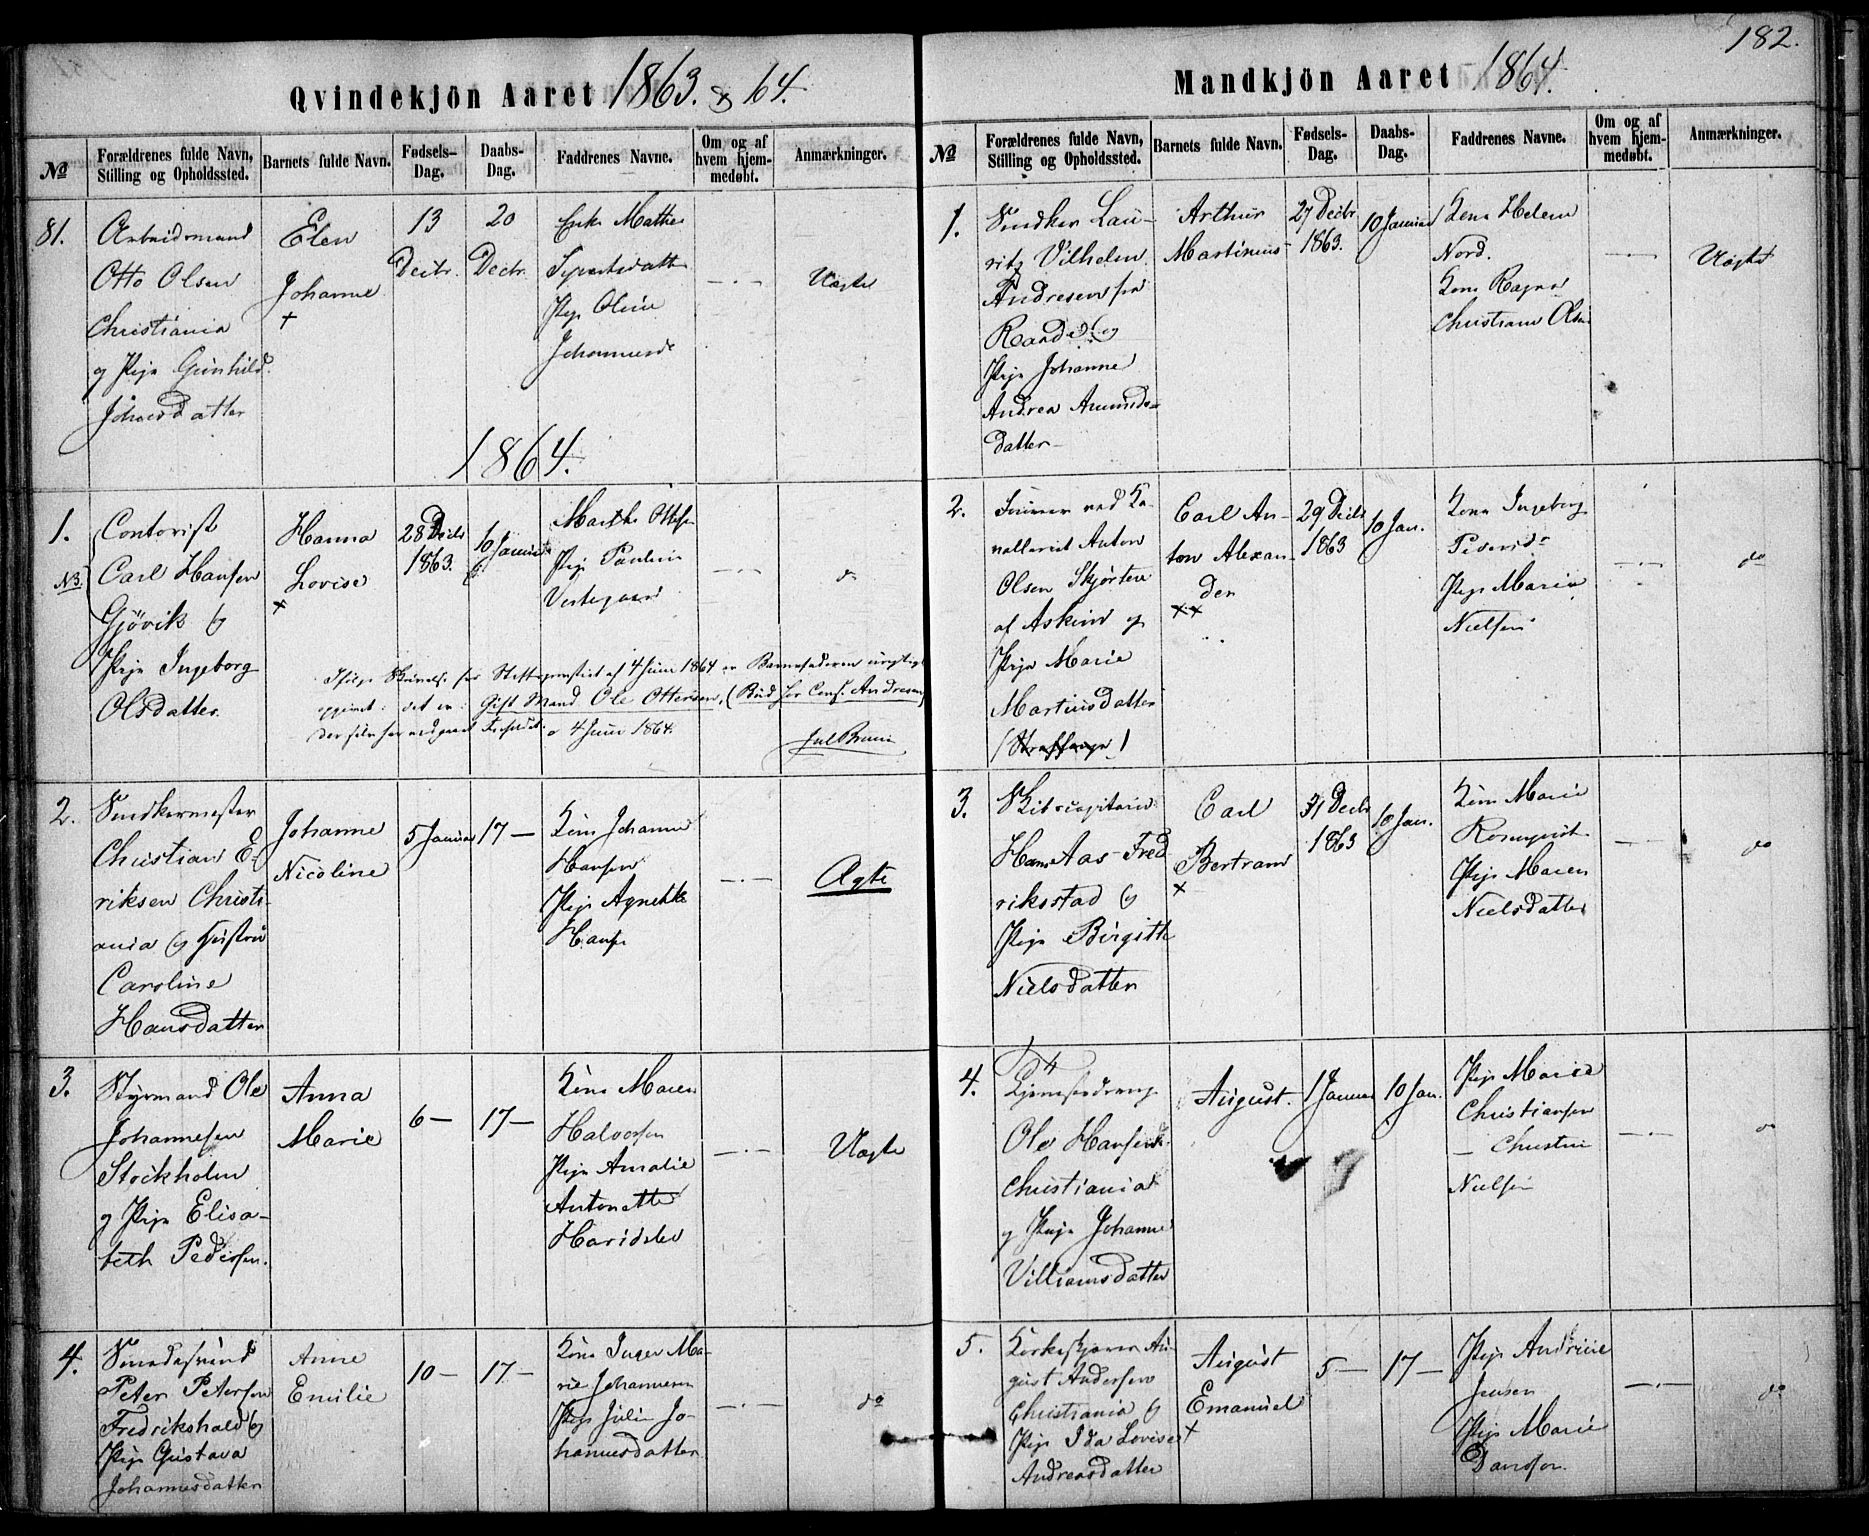 182.
Qvindekjön Aaret 1863. & 64.
№
Forældrenes fulde Navn, Stilling og Opholdssted.
Barnets fulde Navn.
Fødsels-Dag.
Daabs-Dag.
Faddrenes Navne.
Om og af hvem hjem-medøbt.
Anmærkninger.
81.
Arbeidsmand
Otto Olsen
Christiania
og Pige Gunhild
Johnsdatter
Elen
Johanne
+
13
Decbr.
20
Decbr.
Mathea
Pige Oline
—·—
Uægte
1864.
1.
N3.
Contorist
Carl Hansen
Gjövik og
Pige Ingeborg
Olsdatter.
Hanna
Lovise
+
28 Decbr
1863.
10 Januar
Marthe Ottesen
Pige Pauline
Vestegaard
—·—
do
Ifølge Skrivelse fra Stiftsprostiet af 4 Juni 1864 er Barnefaderen urigtigt
opgivet: det er: Gift Mand Ole Ottersen, (Bud hos Cons. Andresen)
4 Juni 1864.
Jul Bruun
2.
Snedkermester
Christian E-
riksen Christi-
ania og Hustru
Caroline
Hansdatter
Johanne
Nicoline
5 Januar
17 —
Kone Johanne
Hansen
Pige Agnethe
Hansen
—·—
Ægte
3.
Styrmand Ole
Johannesen
Stockholm
og Pige Elisa-
beth Pedersen.
Anna
Marie
6 —
17 —
Kone Maren
Halvorsen
Pige Amalie
Antonette
—·—
Uægte
4.
Smedesvend
Peter Petersen
Fredrikshald og
Pige Gustava
Johannesdatter
Anne
Emilie
10 —
17 —
Kone Inger Ma-
rie Johannesen
Pige Julie Jo-
hannesdatter
—·—
do
Mandkjön Aaret 1864.
№
Forældrenes fulde Navn, Stilling og Opholdssted.
Barnets fulde Navn.
Fødsels-Dag.
Daabs-Dag.
Faddrenes Navne.
Om og af hvem hjem-medøbt.
Anmærkninger.
1.
Snedker Lau-
ritz Vilhelm
Andresen fra
Randers og
Pige Johanne
Andrea Amunds-
datter
Arthur
Martinus
27 Decbr
1863.
10 Januar
Kone Helene
Nord.
Kone Ragna
Christiane Olsen
—·—
Uægte
2.
ved Ka-
valleriet Anton
Olsen Skjörten
af Askim og
Pige Marie
Martinsdatter
(Straffange)
Carl An-
ton Alexan-
der
++
29 Decbr
1863
10 Jan.
Kone Ingeborg
Pige Marie
Nielsen
—·—
do
3.
Skibscapitain
Hans Aas Fred
rikstad og
Pige Birgitte
Nielsdatter
Carl
Bertram
+
31 Decbr
1863
10 Jan.
Kone Marie
Rosenqvist
Pige Maren
Nielsdatter
—·—
do
4.
Ole Hansen
Christiania
og Pige Johanne
Villiamsdatter
August.
1 Januar
10 Jan.
Pige Marie
Christiansen
— Christine
Nielsen
—·—
do
5.
August Andersen
Christiania og
Pige Ida Lovise
Andreasdatter
August
Emanuel
+
5 —
17 —
Pige Andrine
Jensen
Pige Marie
Danssen
—·—
do